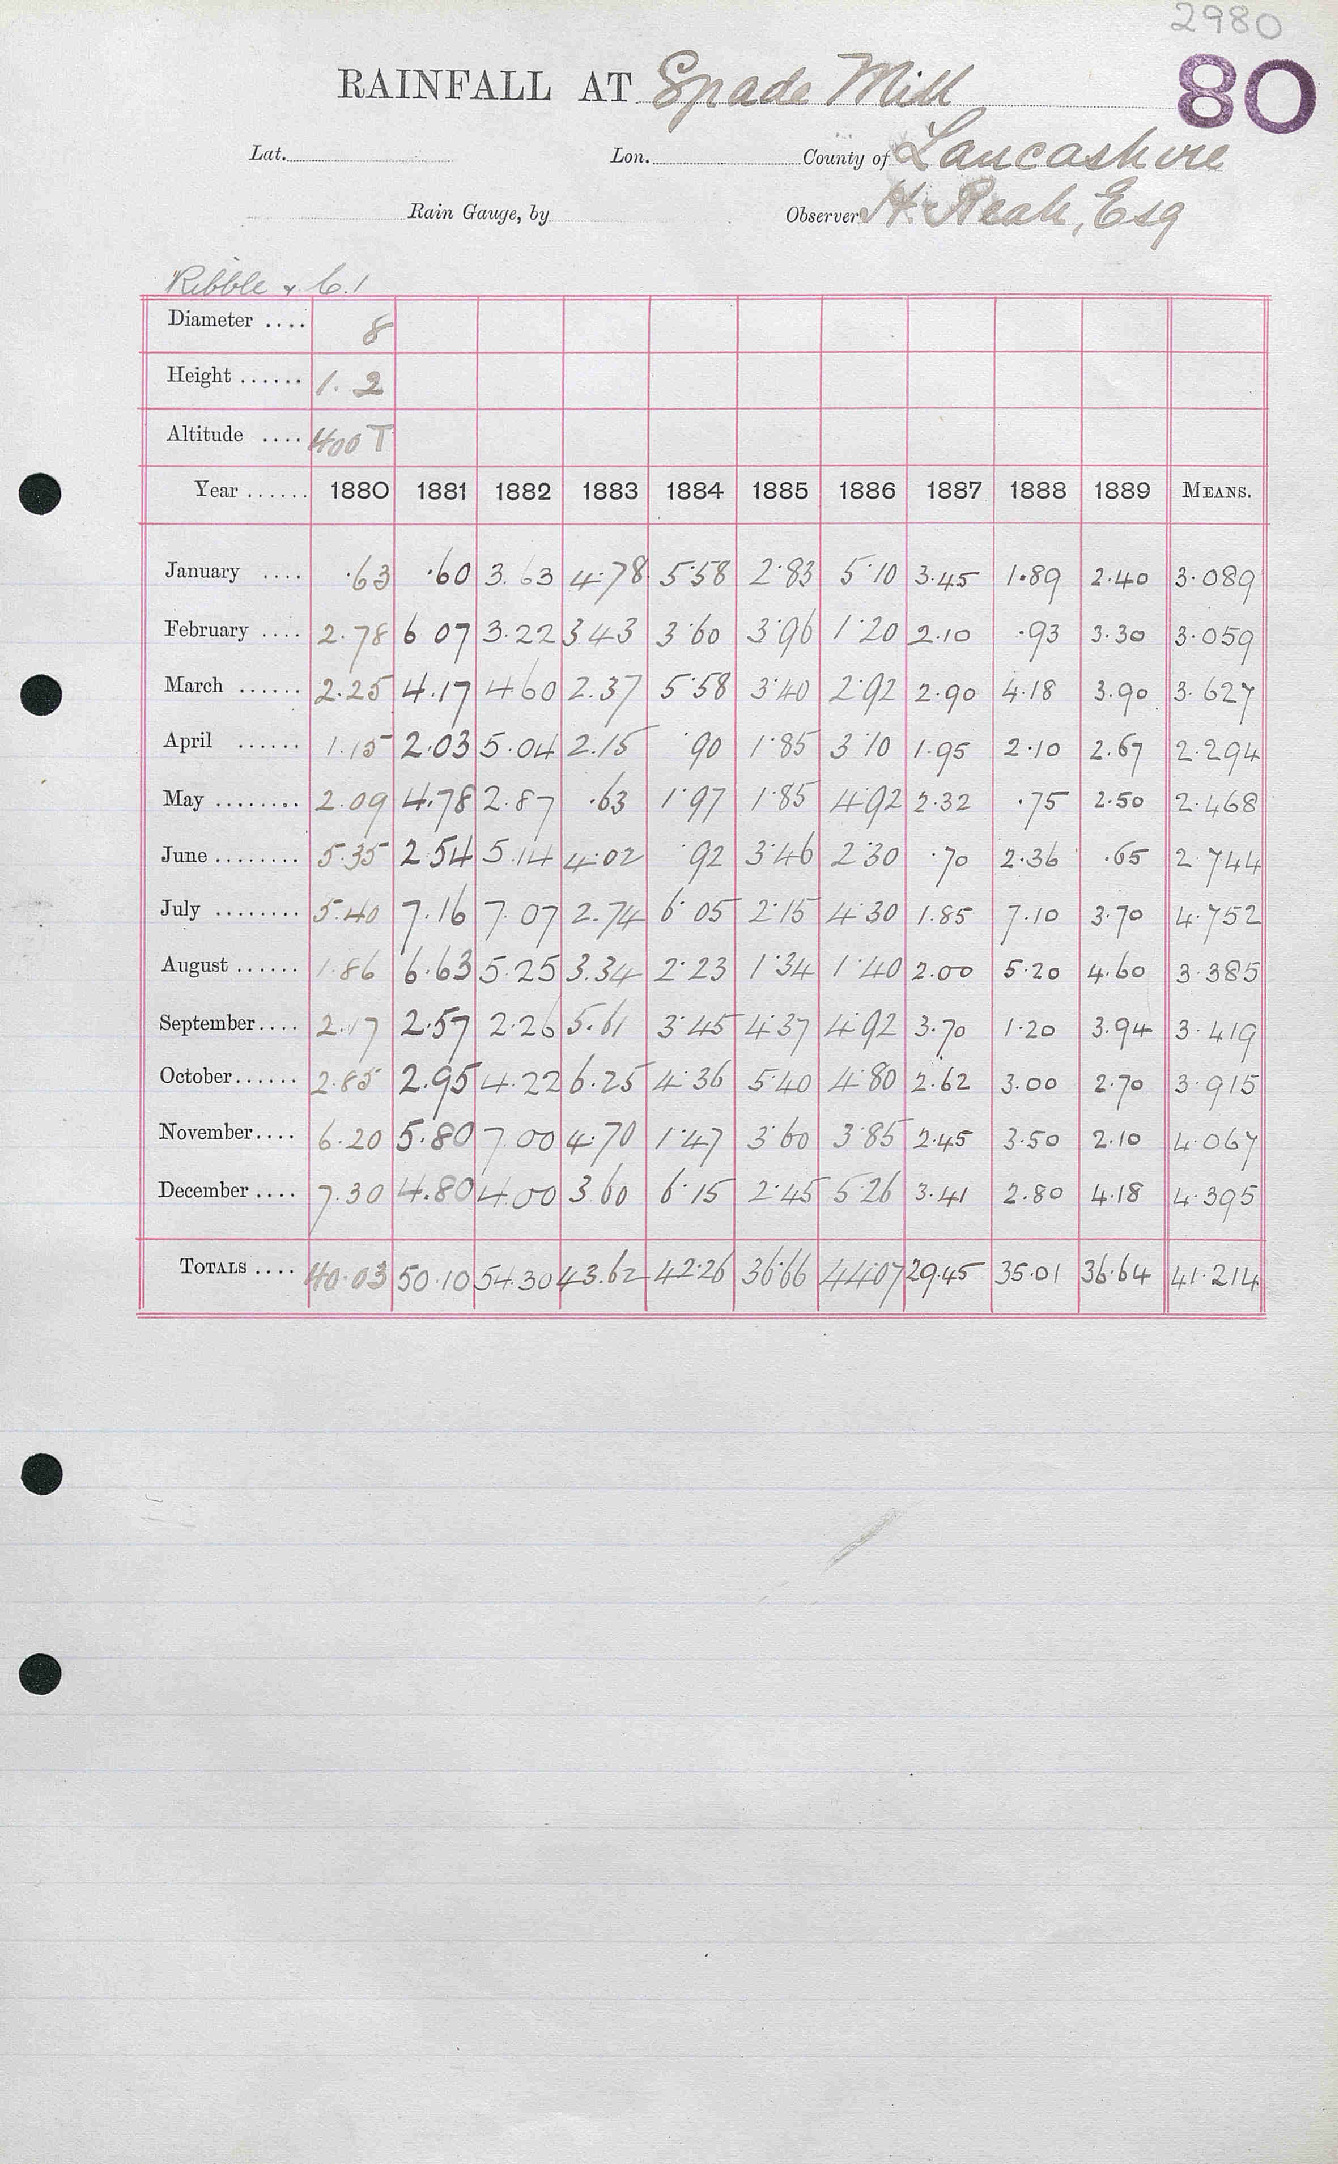 2980
RAINFALL AT Spade Mill 80
Lat. Lon. County of Lancashire
Rain Gauge, by Observer H. Reah, Esq
Ribble + 6.1
Diameter .... 8
Height ...... 1.2
Altitude .... 400 T
Year ...... 1880 1881 1882 1883 1884 1885 1886 1887 1888 1889 MEANS.
January .... .63 .60 3.63 4.78 5.58 2.83 5.10 3.45 1.89 2.40 3.089
February .... 2.78 6 07 3.22 3.43 3.60 3.96 1.20 2.10 .93 3.30 3.059
March ...... 2.25 4.17 4 60 2.37 5.58 3.40 2.92 2.90 4.18 3.90 3.627
April ...... 1.15 2.03 5.04 2.15 .90 1.85 3.10 1.95 2.10 2.67 2.294
May ........ 2.09 4.78 2.87 .63 1.97 1.85 4.92 2.32 .75 2.50 2.468
June ........ 5.35 2.54 5.14 4.02 .92 3.46 2.30 .70 2.36 .65 2.744
July ........ 5.40 7.16 7.07 2.74 6.05 2.15 4.30 1.85 7.10 3.70 4.752
August ...... 1.86 6.63 5.25 3.34 2.23 1.34 1.40 2.00 5.20 4.60 3.385
September.... 2.17 2.57 2.26 5.61 3.45 4.37 4.92 3.70 1.20 3.94 3.419
October...... 2.85 2.95 4.22 6.25 4.36 5.40 4.80 2.62 3.00 2.70 3.915
November.... 6.20 5.80 7.00 4.70 1.47 3.60 3.85 2.45 3.50 2.10 4.067
December .... 7.30 4.80 4.00 3.60 6.15 2.45 5.26 3.41 2.80 4.18 4.395
TOTALS .... 40.03 50.10 54.30 43.62 42.26 36.66 44.07 29.45 35.01 36.64 41.214